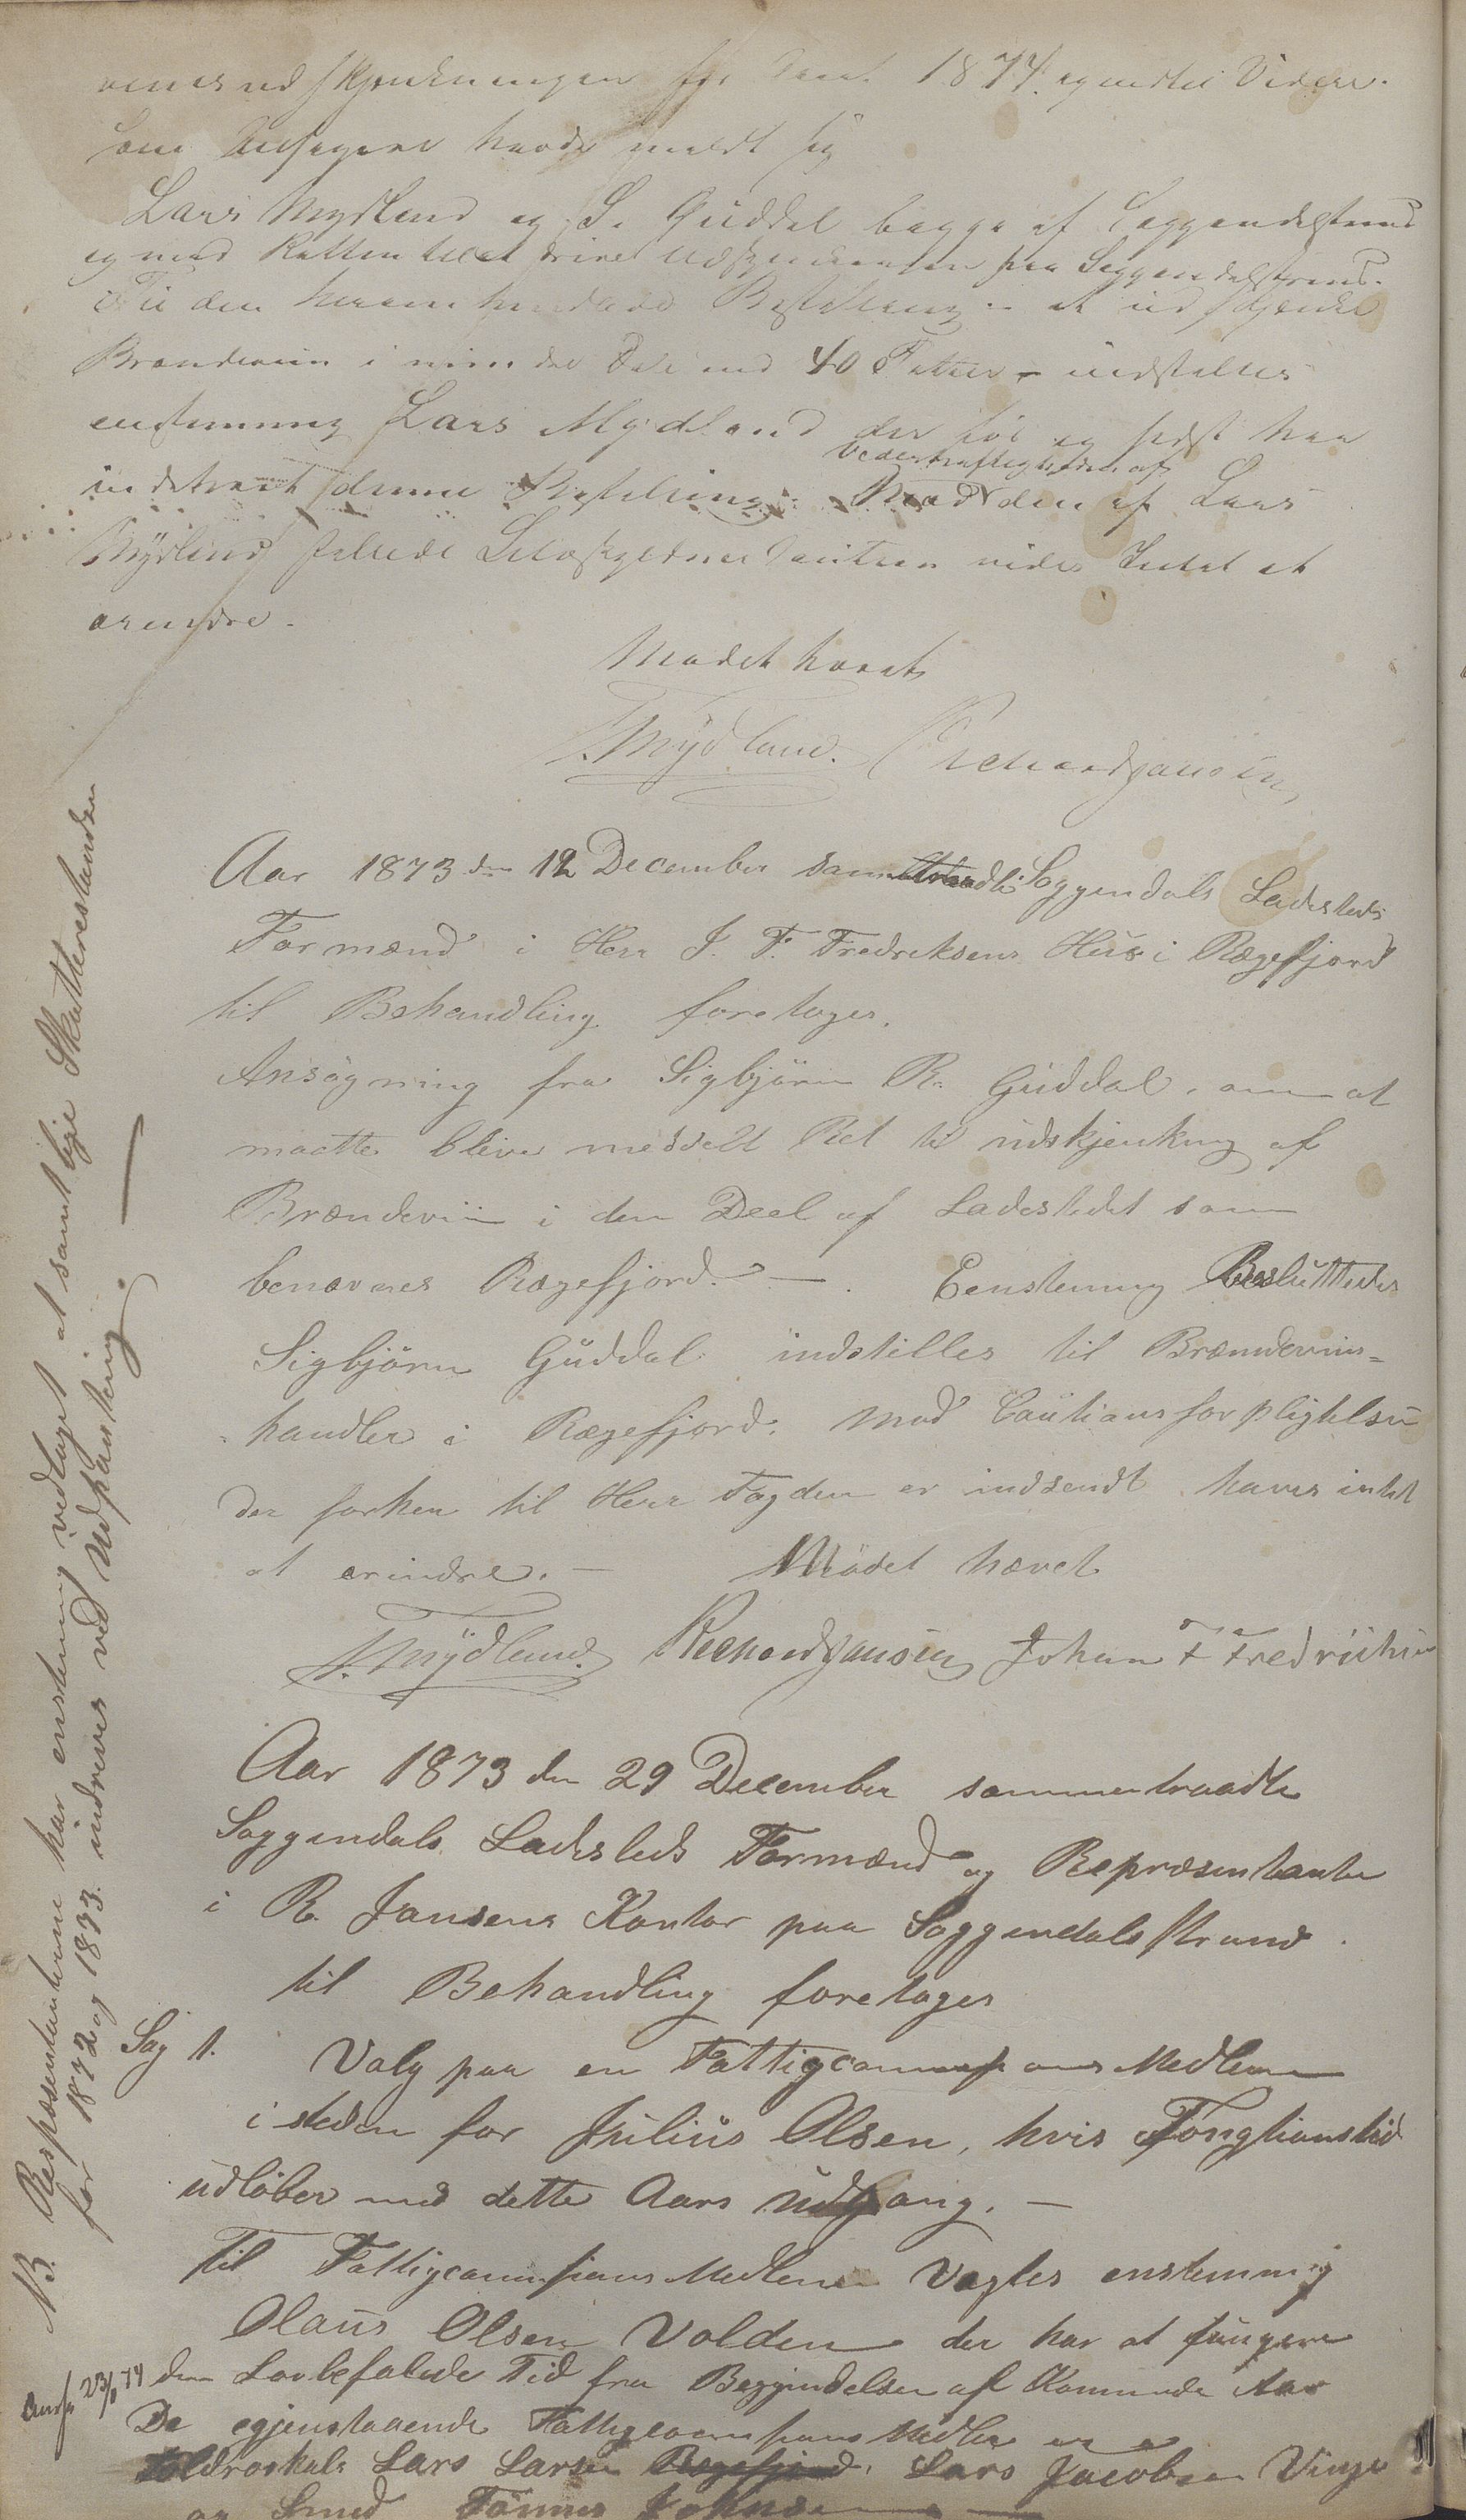 udskjænkningen for Aaret 1874 og indtil Videre.
Som Ansøgere havde meldt sig
Lars Mydland og S. Guddal begge af Soggendalstrand
og med Retten til at drive udskjænkningen paa Soggendalstrand.
Til den herom Bestilling at udskjænke
Brændeviin i mindre Dele end 40 Potter indstilles
enstemmig Lars Mydland der før og sidst har
indehavt denne Bestilling. Mod Vederhæftigheden af den af Lars
Mydland stillede Selvskyldner Caution vides Intet at
erindre.
Mødet hævet
T. Mydland. Richard Jansen
Aar 1873 den 12 December Soggendals Ladesteds
Formænd i Herr J. F. Fredriksens Hus i Rægefjord
til Behandling foretoges.
Ansøgning fra Sigbjørn R. Guddal, om at
maatte blive meddelt Ret til udskjenkning af
Brændeviin i den Deel af Ladestedet som
benævnes Rægefjord. — Eenstemmig Besluttedes
Sigbjørn Guddal indstilles til Brændeviins=
handler i Rægefjord. mod Cautionsforpligtelsen
der forhen til Herr Fogden er indsendt haves intet
at erindre. — Mödet hævet
T. Mydland. Richard Jansen Johan F Fredriksen
Aar 1873 den 29 December sammentraadte
Soggendals Ladesteds Formænd og Repræsentanter
i R. Jansens Kontor paa Soggendals strand.
til Behandling foretoges
Sag 1. Valg paa en Fattigcommissions Medlem
i steden for Julius Olsen, hvis Fongtionstid
udløber med dette Aars Udgang. —
Til Fattigcommissions Medlem Valgtes enstemmig
Olaus Olsen Volden der har at fungere
den Lovbefalede Tid fra Begyndelsen af Kommende Aar
De egjenstaaende Fattigcommissions Medlem er
Toldroskarl Lars Larsen Rægefjord, Lars Jacobsen Vinge
og Smed Tönnes Johnsen
NB. Repræsentanterne har enstemmig vedtaget at samtlige Skatterestancer
for 1872 og 1873 inddrives ved Udpantning.
23/1 74